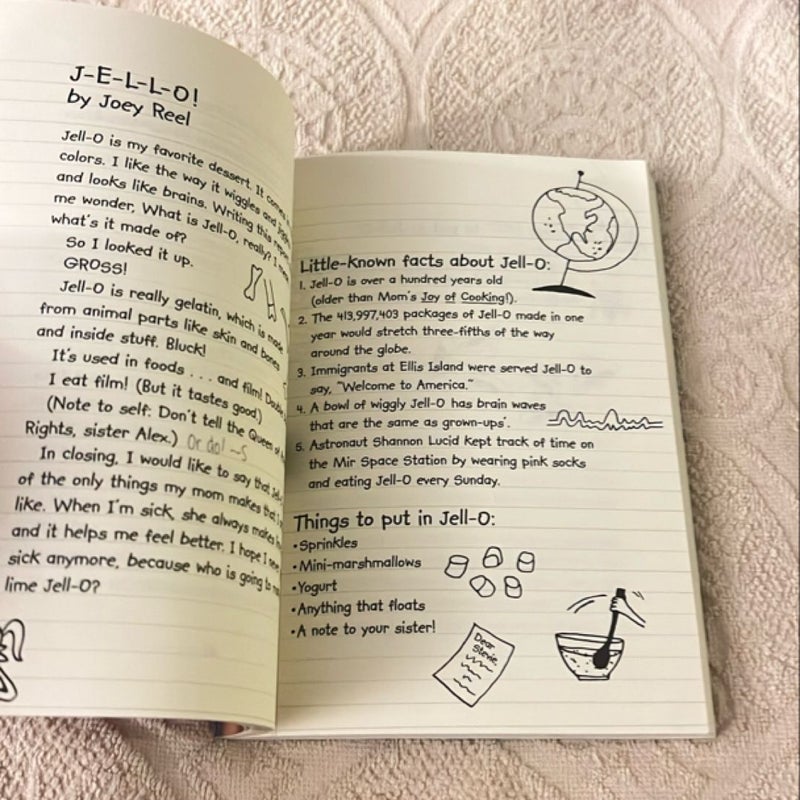 J-E-L-L-O!
by Joey Reel
Jell-O is my favorite dessert. It comes
colors. I like the way it wiggles and
and looks like brains. Writing this
me wonder, What is Jell-O, really? I
what's it made of?
So I looked it up.
GROSS!
Jell-O is really gelatin, which is made
from animal parts like skin and bones
and inside stuff. Bluck!
It's used in foods . . . and film!
I eat film! (But it tastes good.)
(Note to self: Don't tell the Queen of
Rights, sister Alex.) Or Go! ~S
In closing, I would like to say that
of the only things my mom makes that I
like. When I'm sick, she always makes
and it helps me feel better. I hope I
sick anymore, because who is going to
lime Jell-O?
Little-known facts about Jell-O:
1. Jell-O is over a hundred years old
(older than Mom's Joy of Cooking!).
2. The 413,997,403 packages of Jell-O made in one
year would stretch three-fifths of the way
around the globe.
3. Immigrants at Ellis Island were served Jell-O to
say, "Welcome to America."
4. A bowl of wiggly Jell-O has brain waves
that are the same as grown-ups'.
5. Astronaut Shannon Lucid kept track of time on
the Mir Space Station by wearing pink socks
and eating Jell-O every Sunday.
Things to put in Jell-O:
•Sprinkles
•Mini-marshmallows
•Yogurt
•Anything that floats
•A note to your sister!
Dear
Stevie,